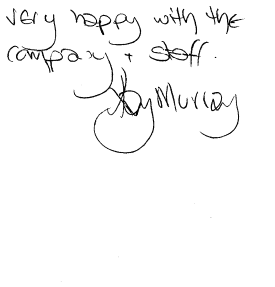 very happy with the
company + staff.
Murray